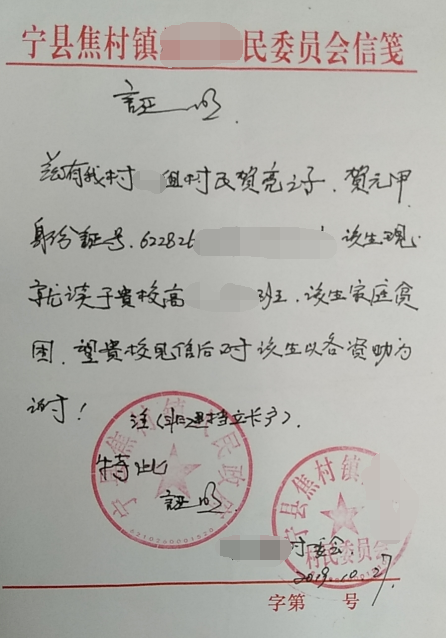 宁县焦村镇 民委员会信笺
证明
兹有我村 组村民贺亮之子、贺元甲
身份证号、622826 该生现
就读于贵校高 班、该生家庭贫
困、望贵校见信后对该生以各资助为
盼！
注（非建档立卡户）.
特此
证明
宁县焦村镇人民政府
6210260001520
宁县焦村镇
村民委员会
村委会
2019.10.27
字第 号